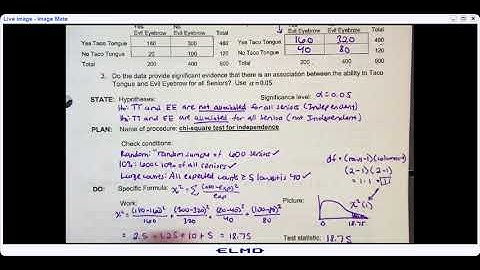 Live image - Image Mate
Yes No
Evil Eyebrow Evil Eyebrow Total
Yes Taco Tongue 180 300 480
No Taco Tongue 20 100 120
Total 200 400 600
Evil Eyebrow Evil Eyebrow Total
Yes Taco Tongue 160 320 480
No Taco Tongue 40 80 120
Total 200 400 600
Do the data provide significant evidence that there is an association between the ability to Taco
Tongues and Evil Eyebrow for all Seniors? Use α=0.05
STATE: Hypotheses: Significance level: α=0.05
Ho: TT and EE are not associated for all seniors (Independent)
Ha: TT and EE are associated for all seniors (not Independent)
PLAN: Name of procedure: chi-square test for independence
Check conditions:
Random: "random sample of 600 seniors" ✓
10%: 600<10% of all seniors ✓
Large counts: All expected counts ≥ 5 lowest is 40 ✓
df = (rows-1)(columns-1)
(2-1)(2-1)
= 1·1 = 1
DO: Specific Formula: χ² = Σ (obs-exp)²/exp Picture:
Work:
χ² = (180-160)²/160 + (300-320)²/320 + (20-40)²/40 + (100-80)²/80
χ²(1)
18.75
= 2.5 + 1.25 + 10 + 5 = 18.75 Test statistic: 18.75
ELMO